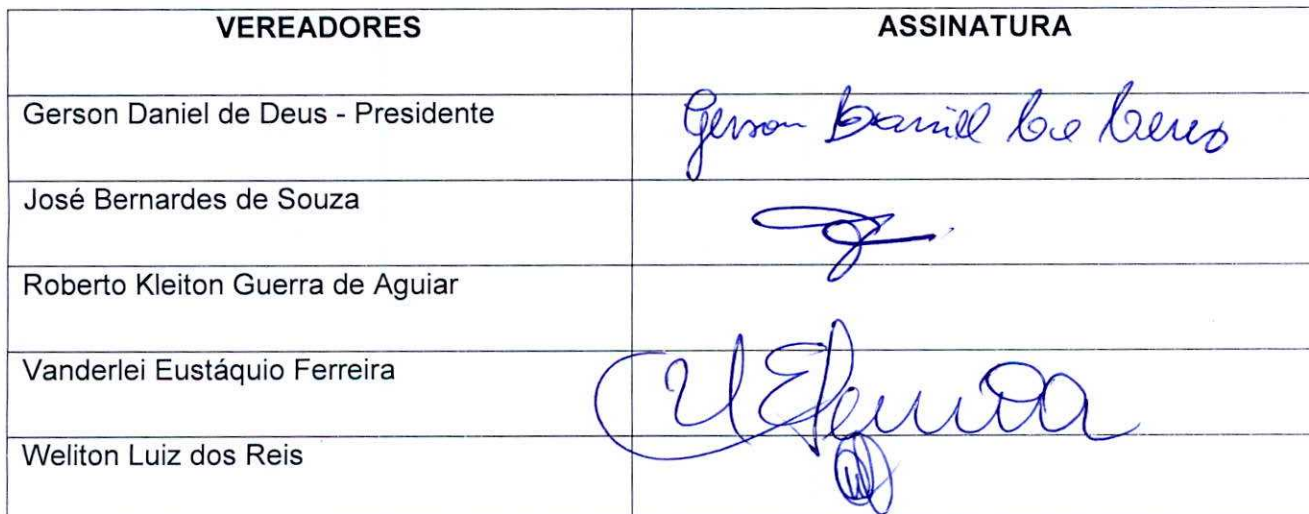 VEREADORES ASSINATURA
Gerson Daniel de Deus - Presidente Gerson Daniel de Deus
José Bernardes de Souza
Roberto Kleiton Guerra de Aguiar
Vanderlei Eustáquio Ferreira VEFerreira
Weliton Luiz dos Reis